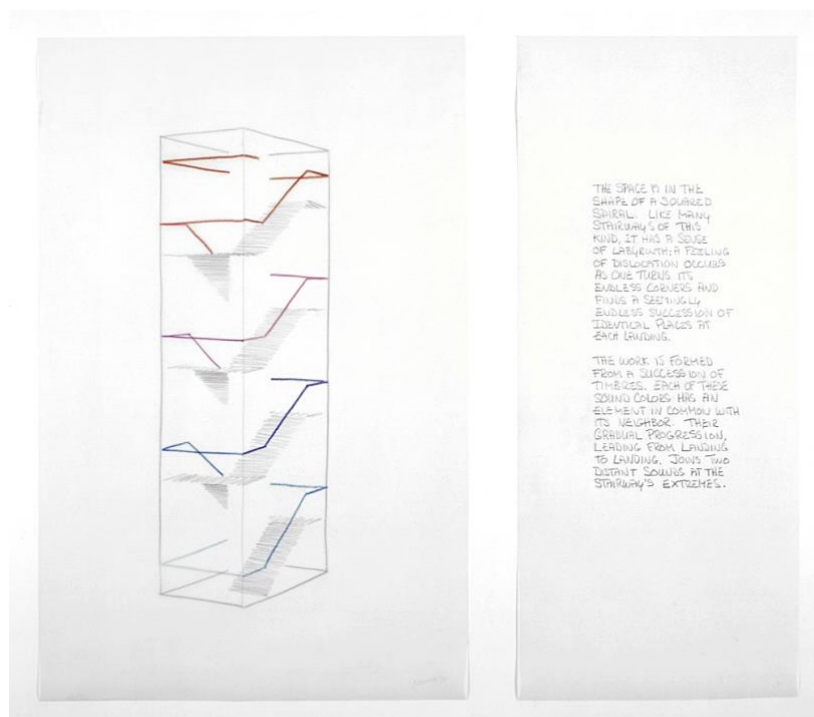 THE SPACE IS IN THE
SHAPE OF A SQUARED
SPIRAL. LIKE MANY
STAIRWAYS OF THIS
KIND, IT HAS A SENSE
OF LABYRINTH; A FEELING
OF DISLOCATION OCCURS
AS ONE TURNS ITS
ENDLESS CORNERS AND
FINDS A SEEMINGLY
ENDLESS SUCCESSION OF
IDENTICAL PLACES AT
EACH LANDING.
THE WORK IS FORMED
FROM A SUCCESSION OF
TIMBRES. EACH OF THESE
SOUND COLORS HAS AN
ELEMENT IN COMMON WITH
ITS NEIGHBOR. THEIR
GRADUAL PROGRESSION,
LEADING FROM LANDING
TO LANDING, JOINS TWO
DISTANT SOUNDS AT THE
STAIRWAY'S EXTREMES.